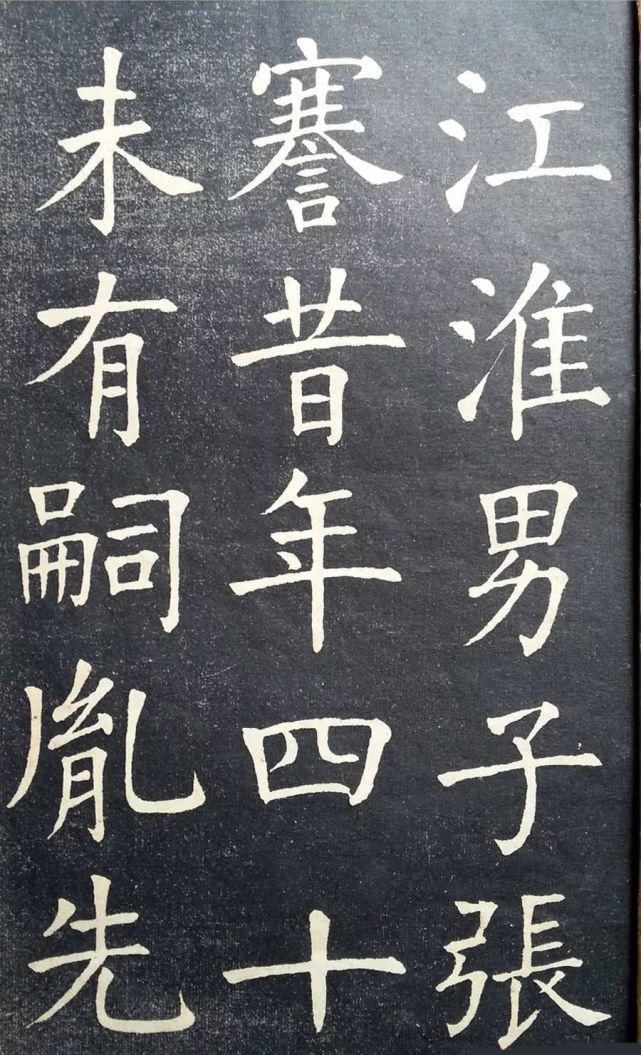 江淮男子張
謇昔年四十
未有嗣胤先